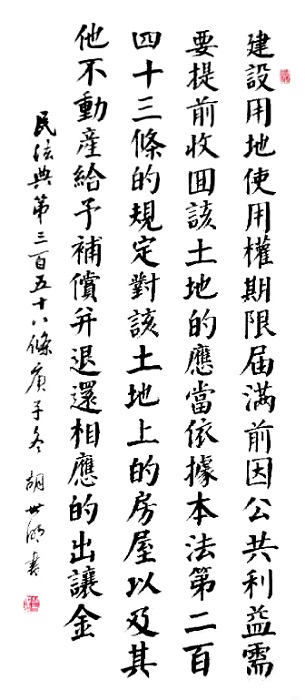 建設用地使用權期限届滿前因公共利益需
要提前收囬該土地的應當依據本法第二百
四十三條的規定對該土地上的房屋以及其
他不動産給予補償并退還相應的出讓金
民法典第三百五十八條庚子冬胡世浩書